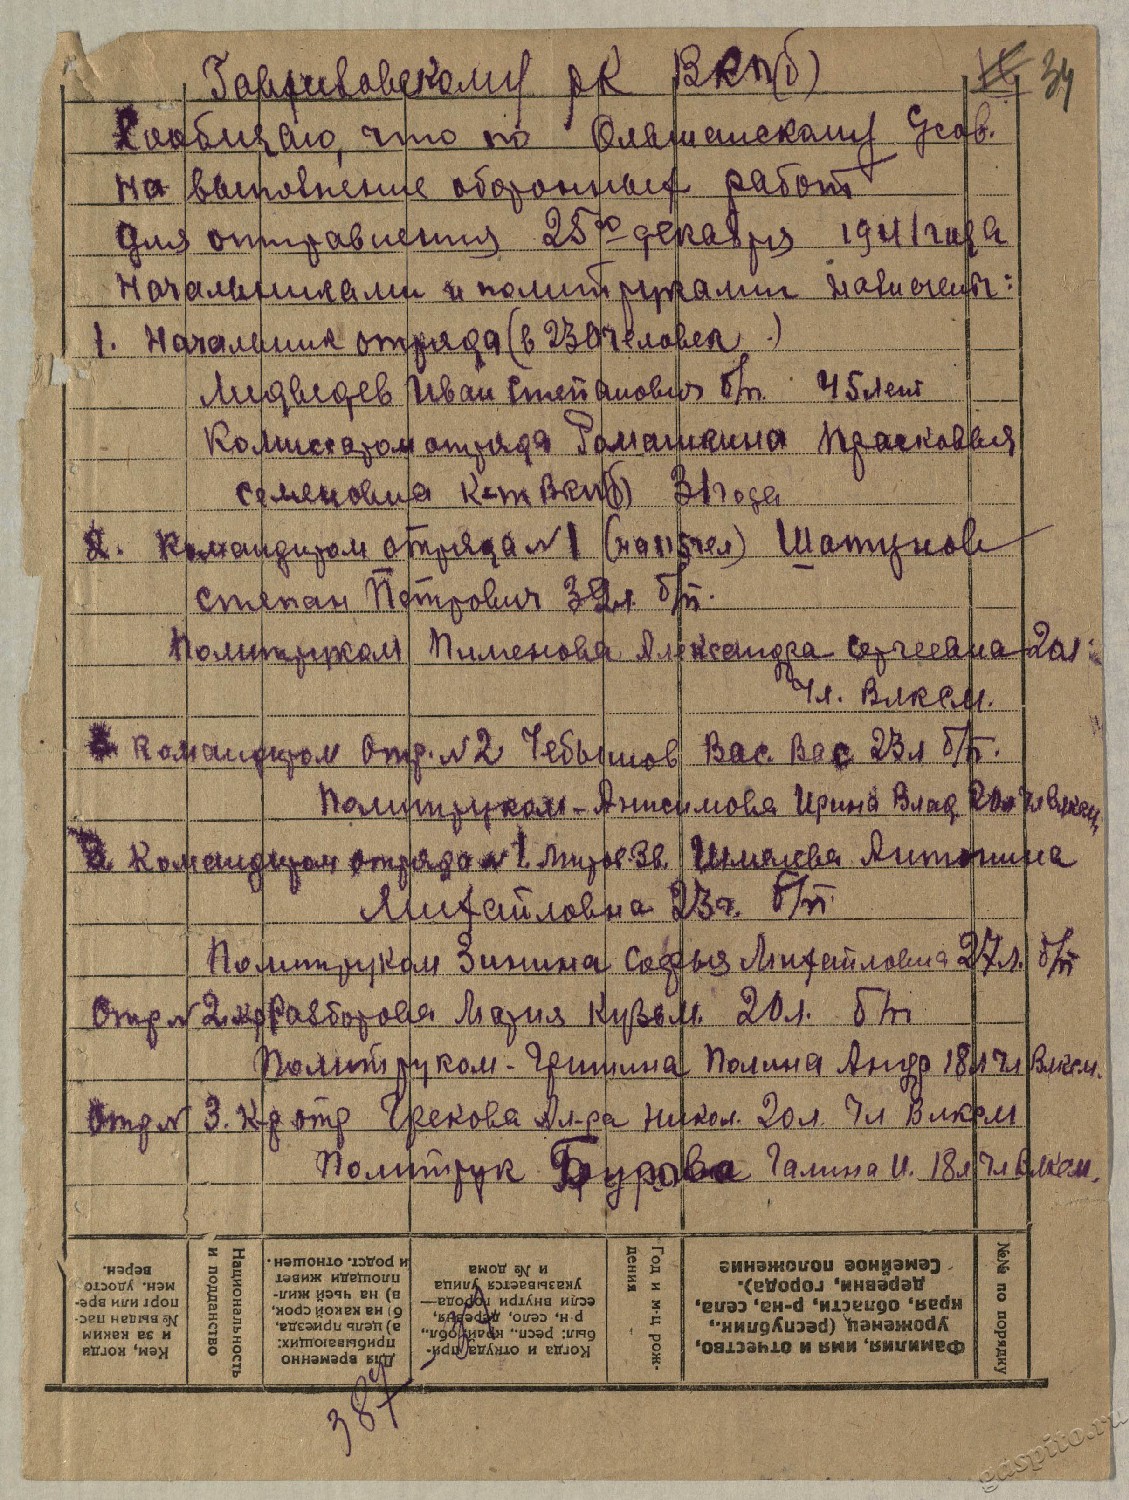 Гавриловскому РК ВКП(б)
34
Сообщаю, что по Ольшанскому
на выполнение оборонных работ
для отправления 25го декабря 1941 года
Начальниками и политруками назначены:
1. Начальник отряда (в 230 человек)
Медведев Иван Степанович б/п. 45 лет
Комиссаром отряда Ромашкина Прасковья
Семеновна К-т ВКП(б) 31 года
2. Командиром отряда №1 (на 115 чел) Шатунов
Степан Петрович 32 л. б/п.
Политруком Пименова Александра Сергеевна 20 л.
чл. ВЛКСМ.
Командиром отр. №2 Чебышов Вас. Вас 23 л б/п.
Политруком - Анисимова Ирина Влад 20 л чл ВЛКСМ
3. Командиром отряда №1 Шмелева Антонина
Михайловна 23 г. б/п
Политруком Зинина Софья Михайловна 27 л. б/п
Отр № 2. к-р Мария Кузьм. 20 л. б/п
Политруком - Гришина Полина Андр 18 л чл ВЛКСМ.
Отр № 3. К-р отр Грекова Ал-ра Никол. 20 л. чл ВЛКСМ
Политрук Бурова Галина И. 18 л чл ВЛКСМ.
№№ по порядку
Фамилия, имя и отчество, уроженец (республик., края, области, р-на, села, деревни, города). Семейное положение
Год и м-ц рождения
Когда и откуда прибыл: респ., край, обл., р-н, село, деревня, если внутри города— указывается улица и № дома
Для временно прибывающих: а) цель приезда, б) на какой срок, в) на чьей жилплощади живет и родст. отношен.
Национальность и подданство
Кем, когда и за каким № выдан паспорт или времен. удостоверен.
387
gaspito.ru